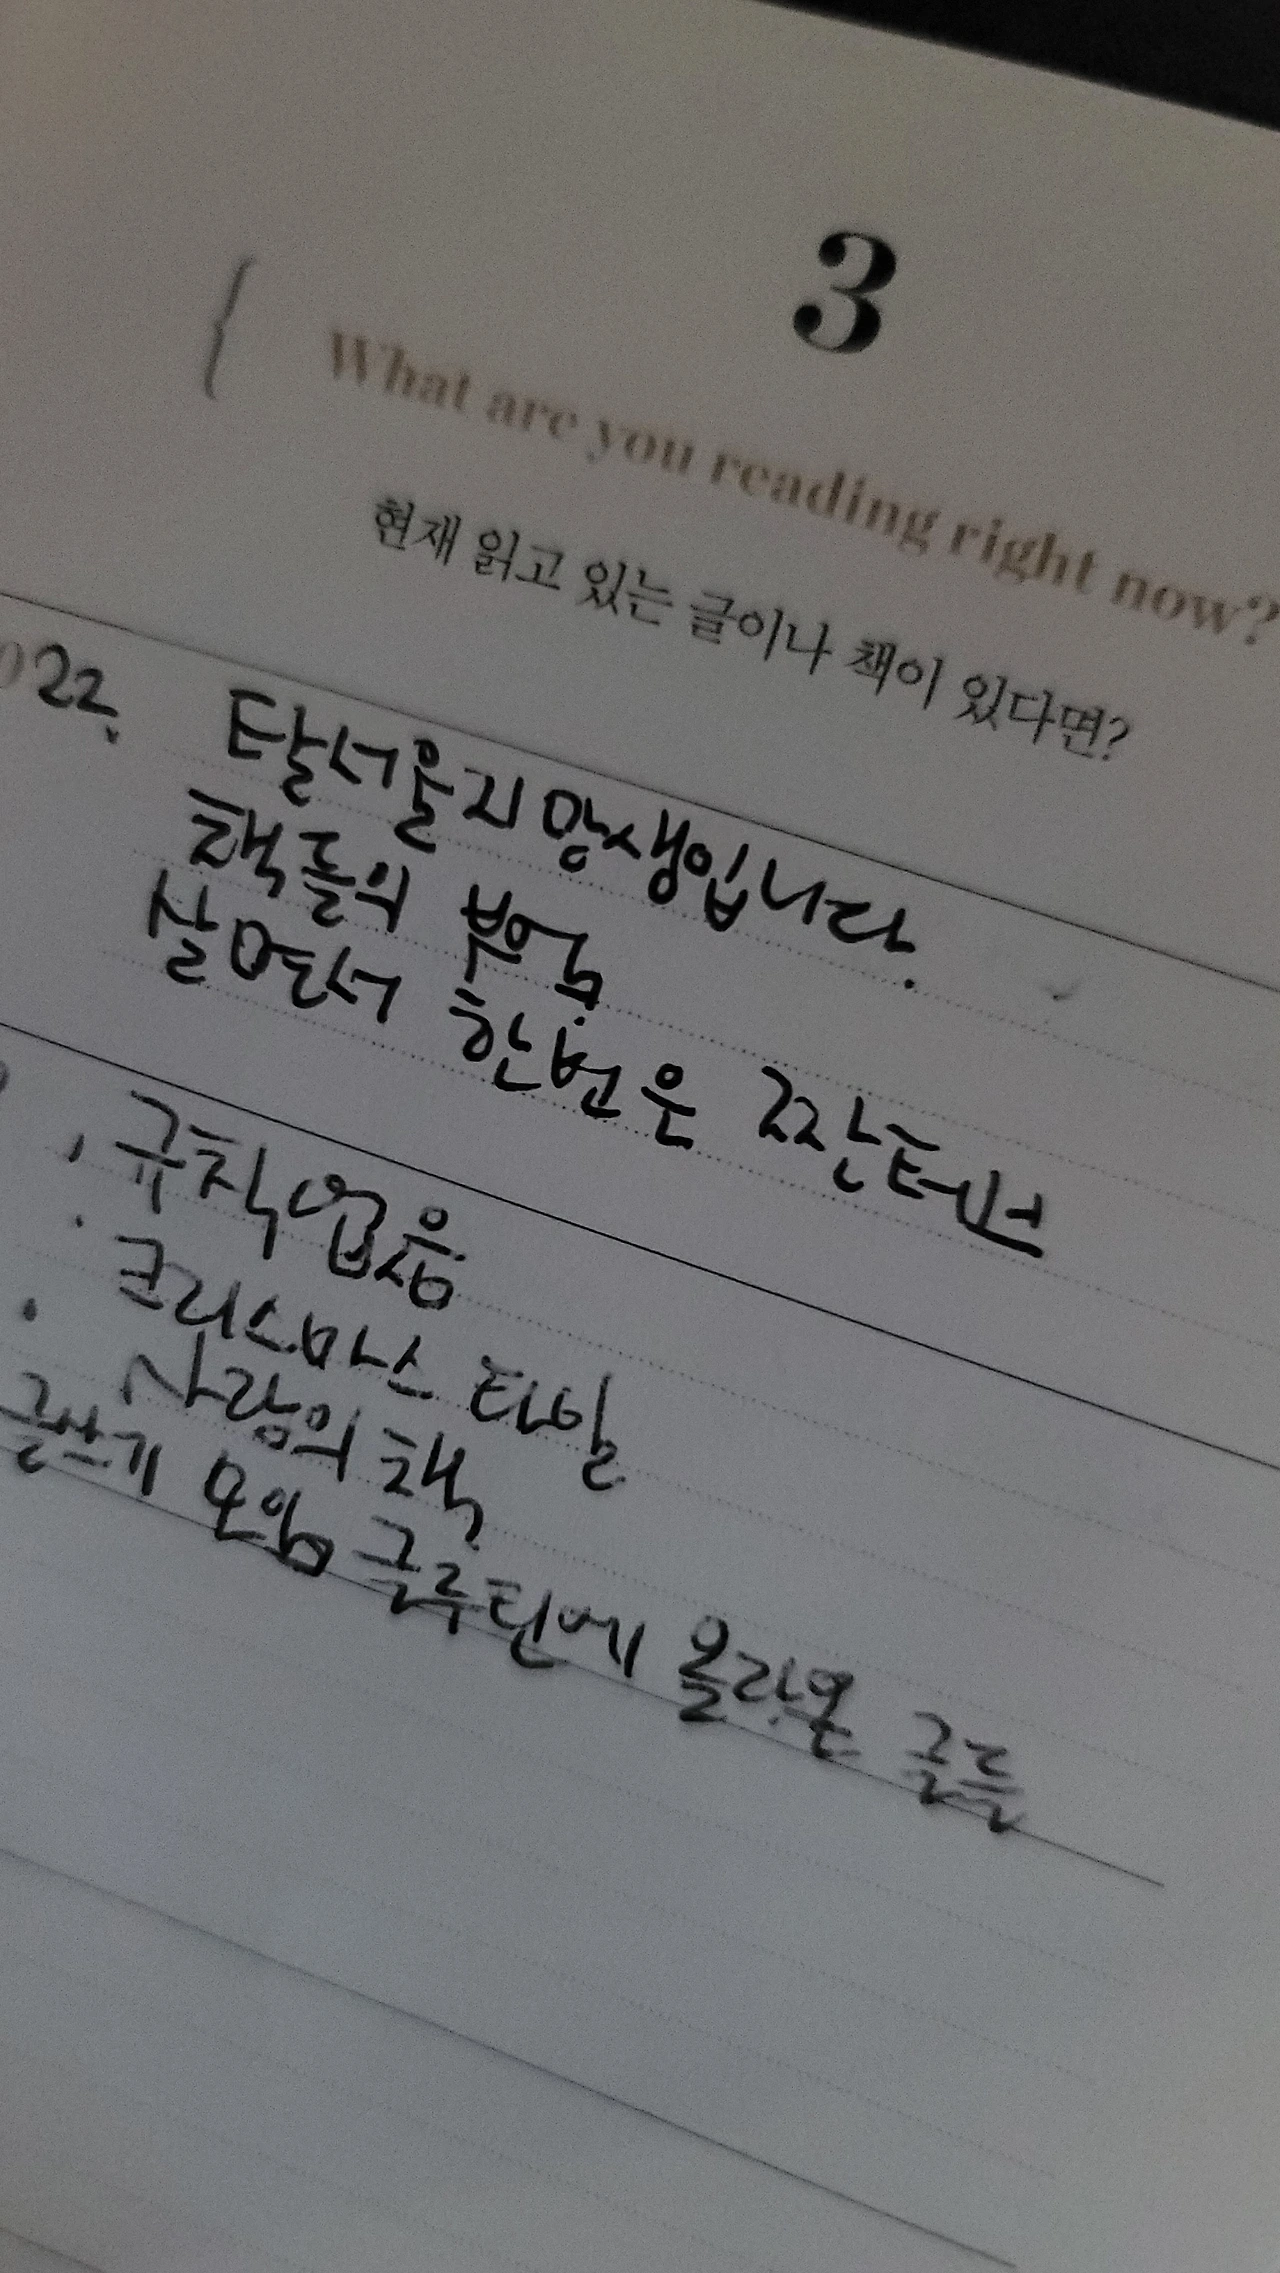 3
What are you reading right now?
현재 읽고 있는 글이나 책이 있다면?
022. 탈서울지망생입니다.
책들의 부엌
살면서 한번은 짠테크
규칙없음
크리스마스 타일
사랑의 책
글쓰기 모임 글루틴에 올라온 글들